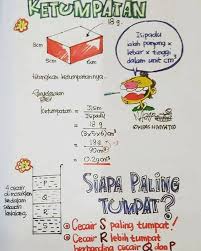 KETUMPATAN
18g.
3cm
5cm
6cm
Isipadu
ialah panjang x
lebar x tinggi
dalam unit cm³
Hitungkan ketumpatannya.
Penyelesaian
Ketumpatan = Jisim
Isipadu
= 18 g
(3x5x6)cm³
= 18 g
90cm³
= 0.2g/cm³
4 cecair
dimasukkan
P
Q
R
S
SIAPA PALING
TUMPAT?
Cecair S paling tumpat!
Cecair R lebih tumpat
berbanding cecair Q dan P